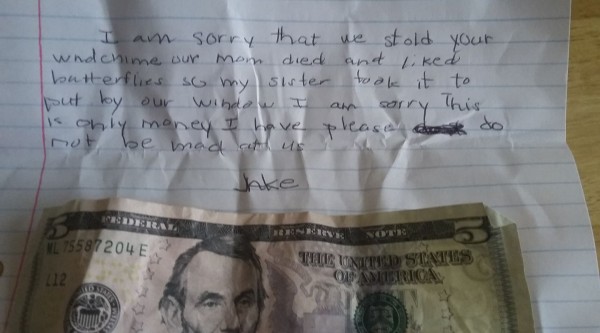 I am sorry that we stold your
wndchime our mom died and liked
butterflies so my sister took it to
put by our window I am sorry This
is only money I have please do
not be mad att us
Jake
5 FEDERAL RESERVE NOTE 5
ML 75587204 E
THE UNITED STATES
OF AMERICA
L12